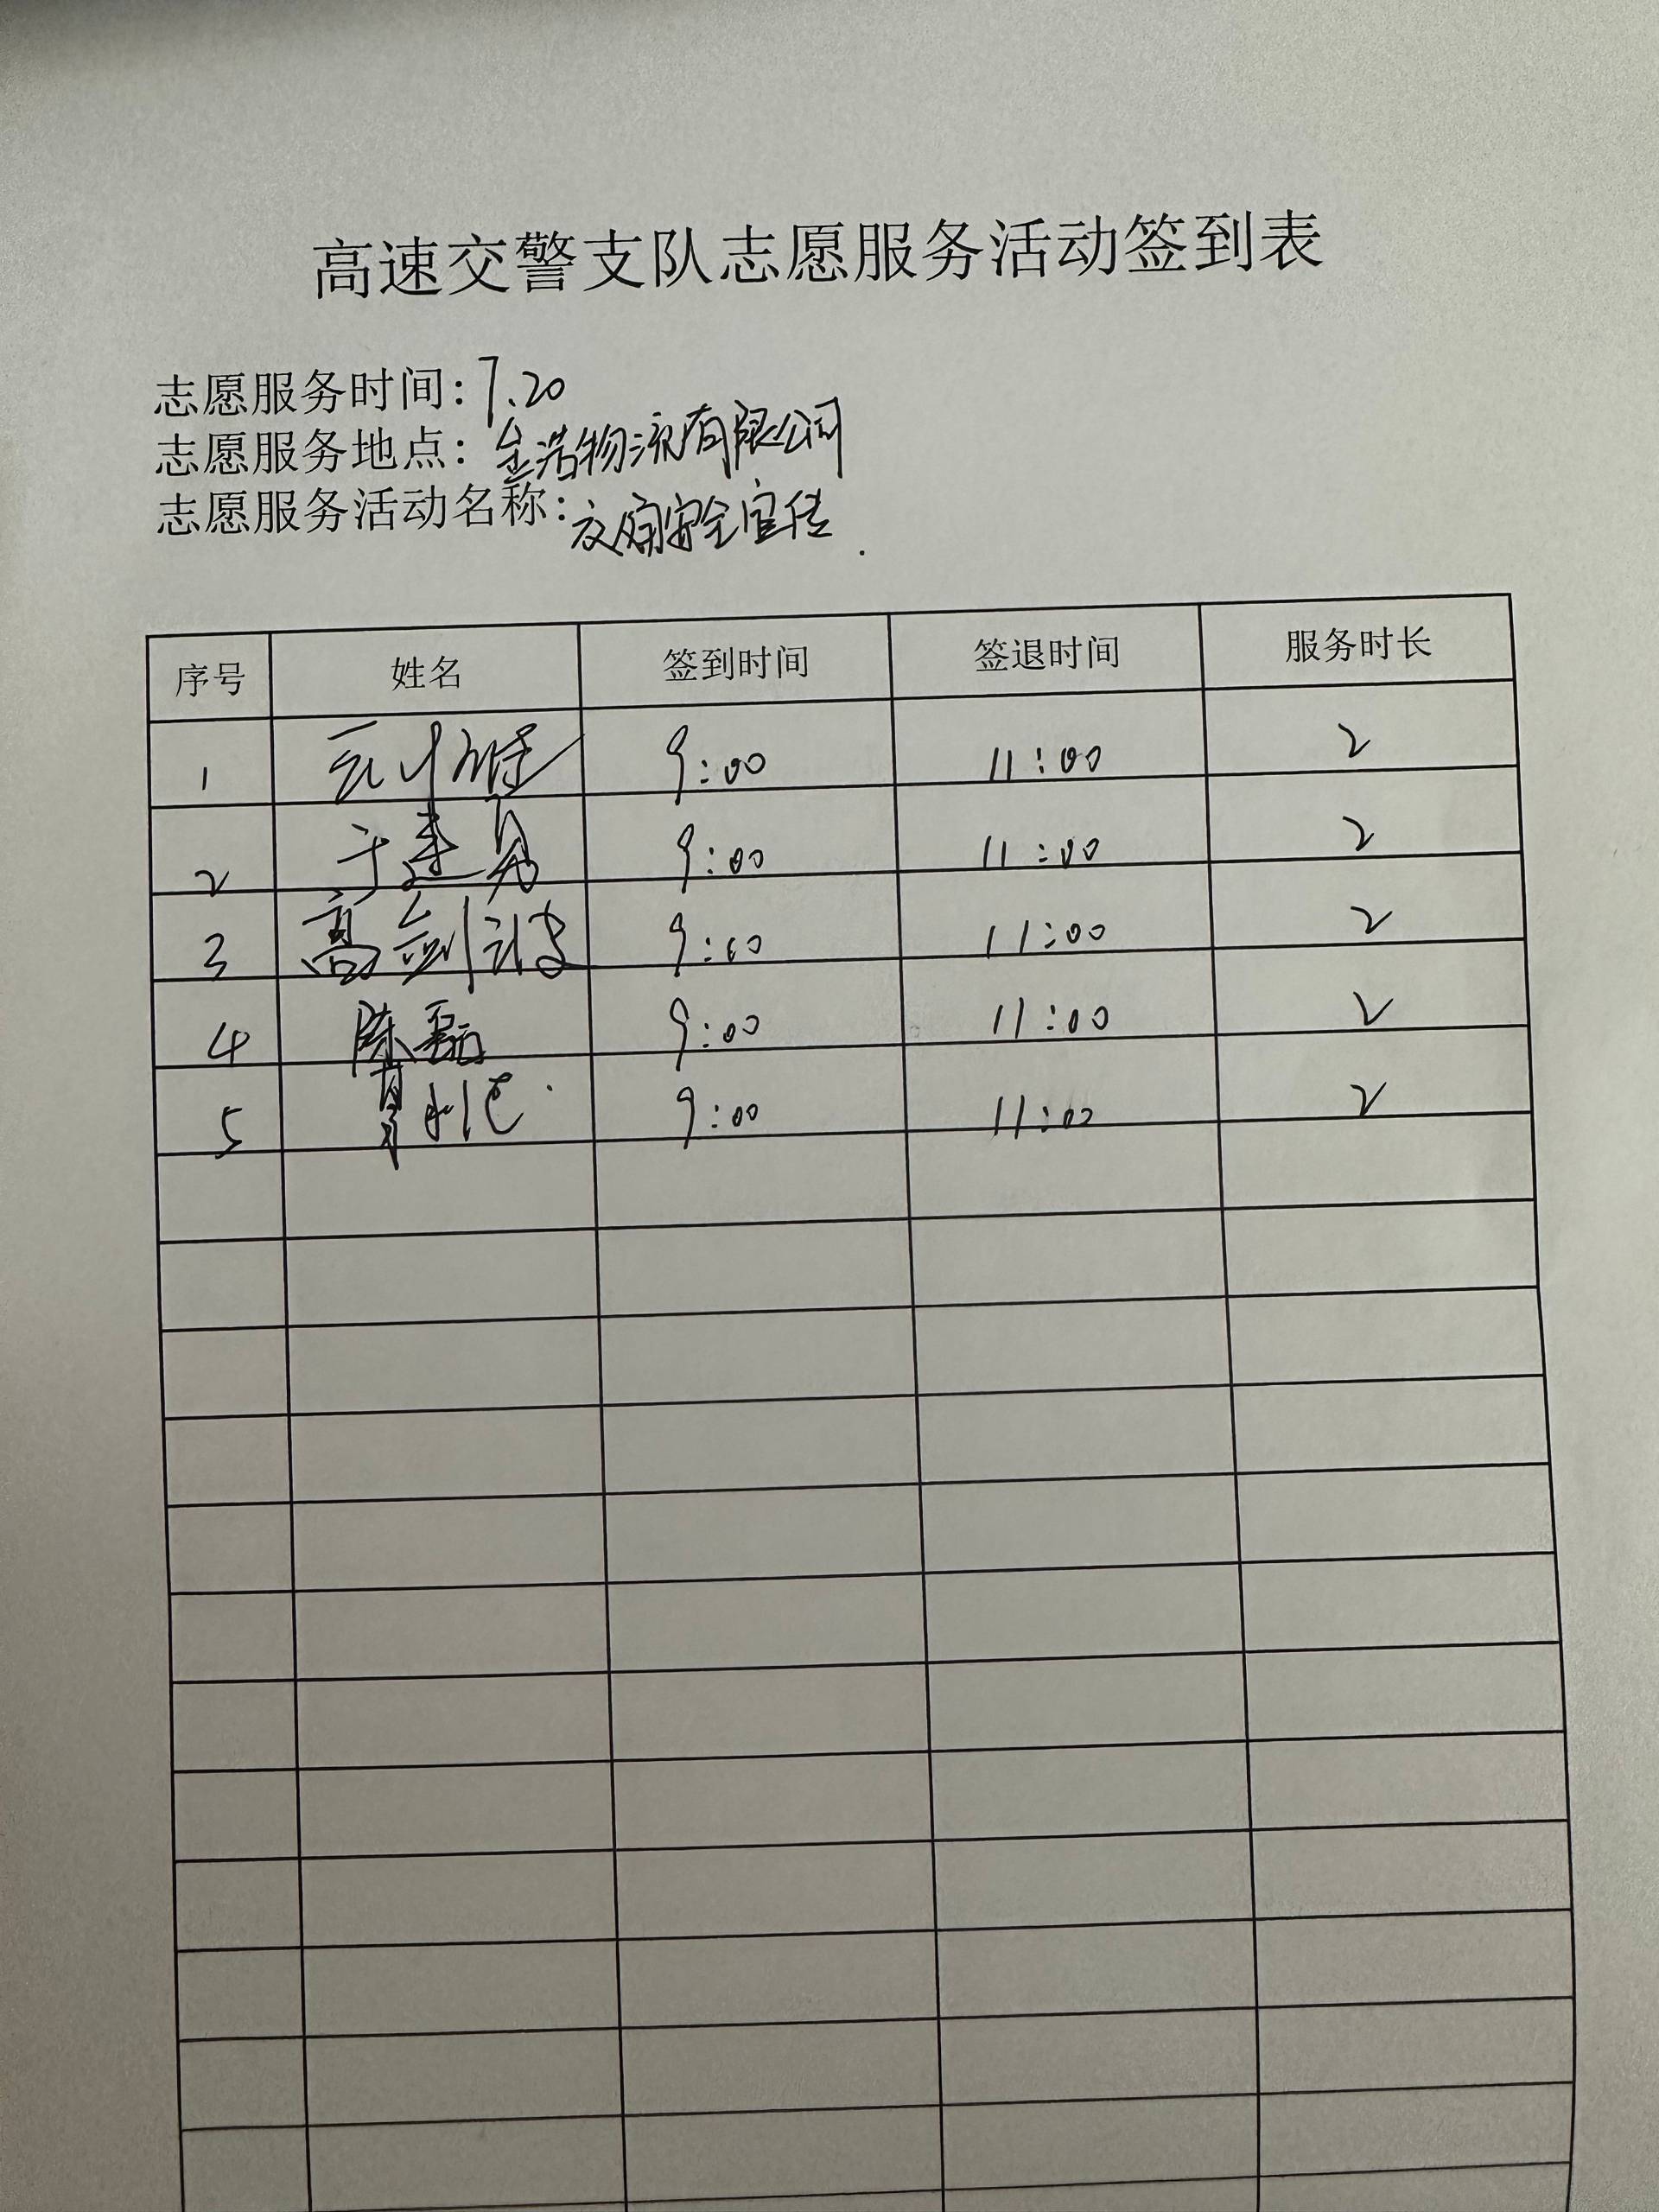 高速交警支队志愿服务活动签到表
志愿服务时间:7.20
志愿服务地点:金浩物流有限公司
志愿服务活动名称:交通安全宣传
序号 姓名 签到时间 签退时间 服务时长
1 9:00 11:00 2
2 于建勇 9:00 11:00 2
3 高剑波 9:00 11:00 2
4 陈磊 9:00 11:00 2
5 9:00 11:00 2